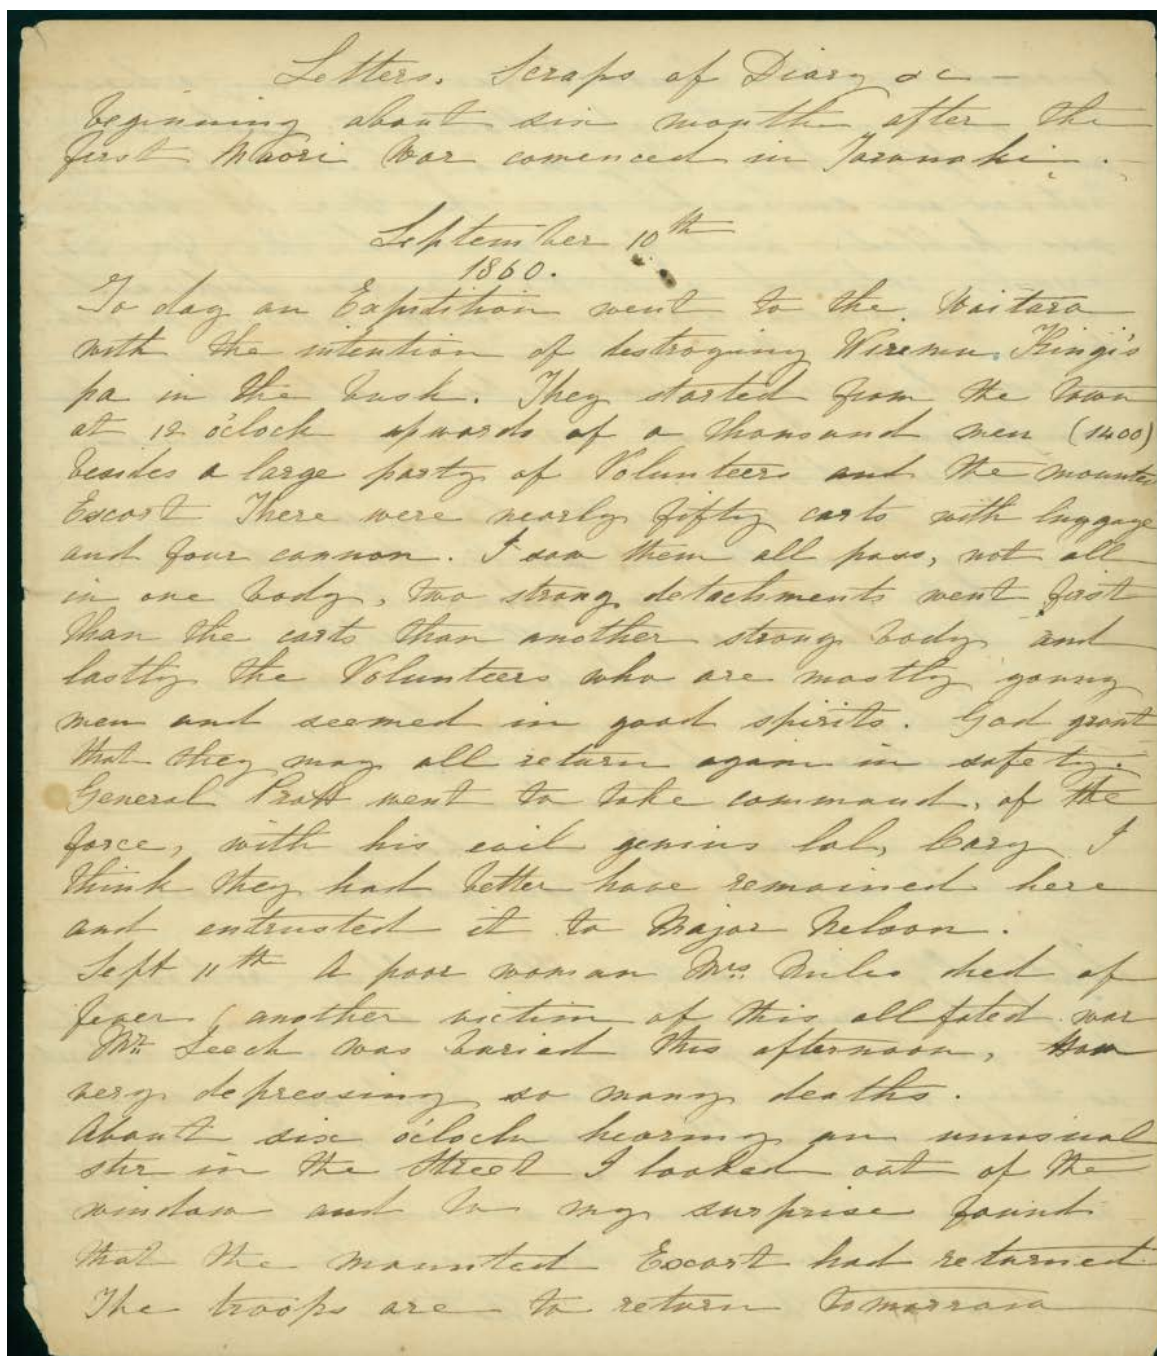 Letters. Scraps of Diary &c -
beginning about six month after the
first Maori War comenced in Taranaki.
September 10th
1860.
To day an Expidition went to the Waitara
with the intention of destroying Wiremu Kingi's
pa in the bush. They started from the town
at 12 o'clock upwards of a thousand men (1400)
besides a large party of Volunteers and the mounted
Escort There were nearly fifty carts with luggage
and four cannon. I saw them all pass, not all
in one body, two strong detachments went first
than the carts than another strong body and
lastly the Volunteers who are mostly young
men and seemed in good spirits. God grant
that they may all return again in safety.
General Pratt went to take command, of the
force, with his evil genius Col, Cary I
think they had better have remained here
and entrusted it to Major Nelson.
Sept 11th A poor woman Mrs. Miles died of
fever (another victim of this ill fated war
Mr. Leech was buried this afternoon, How
very depressing so many deaths.
About six o'clock hearing an unusual
stir in the Street I looked out of the
window and to my surprise found
that the mounted Escort had returned
The troops are to return tomorrow